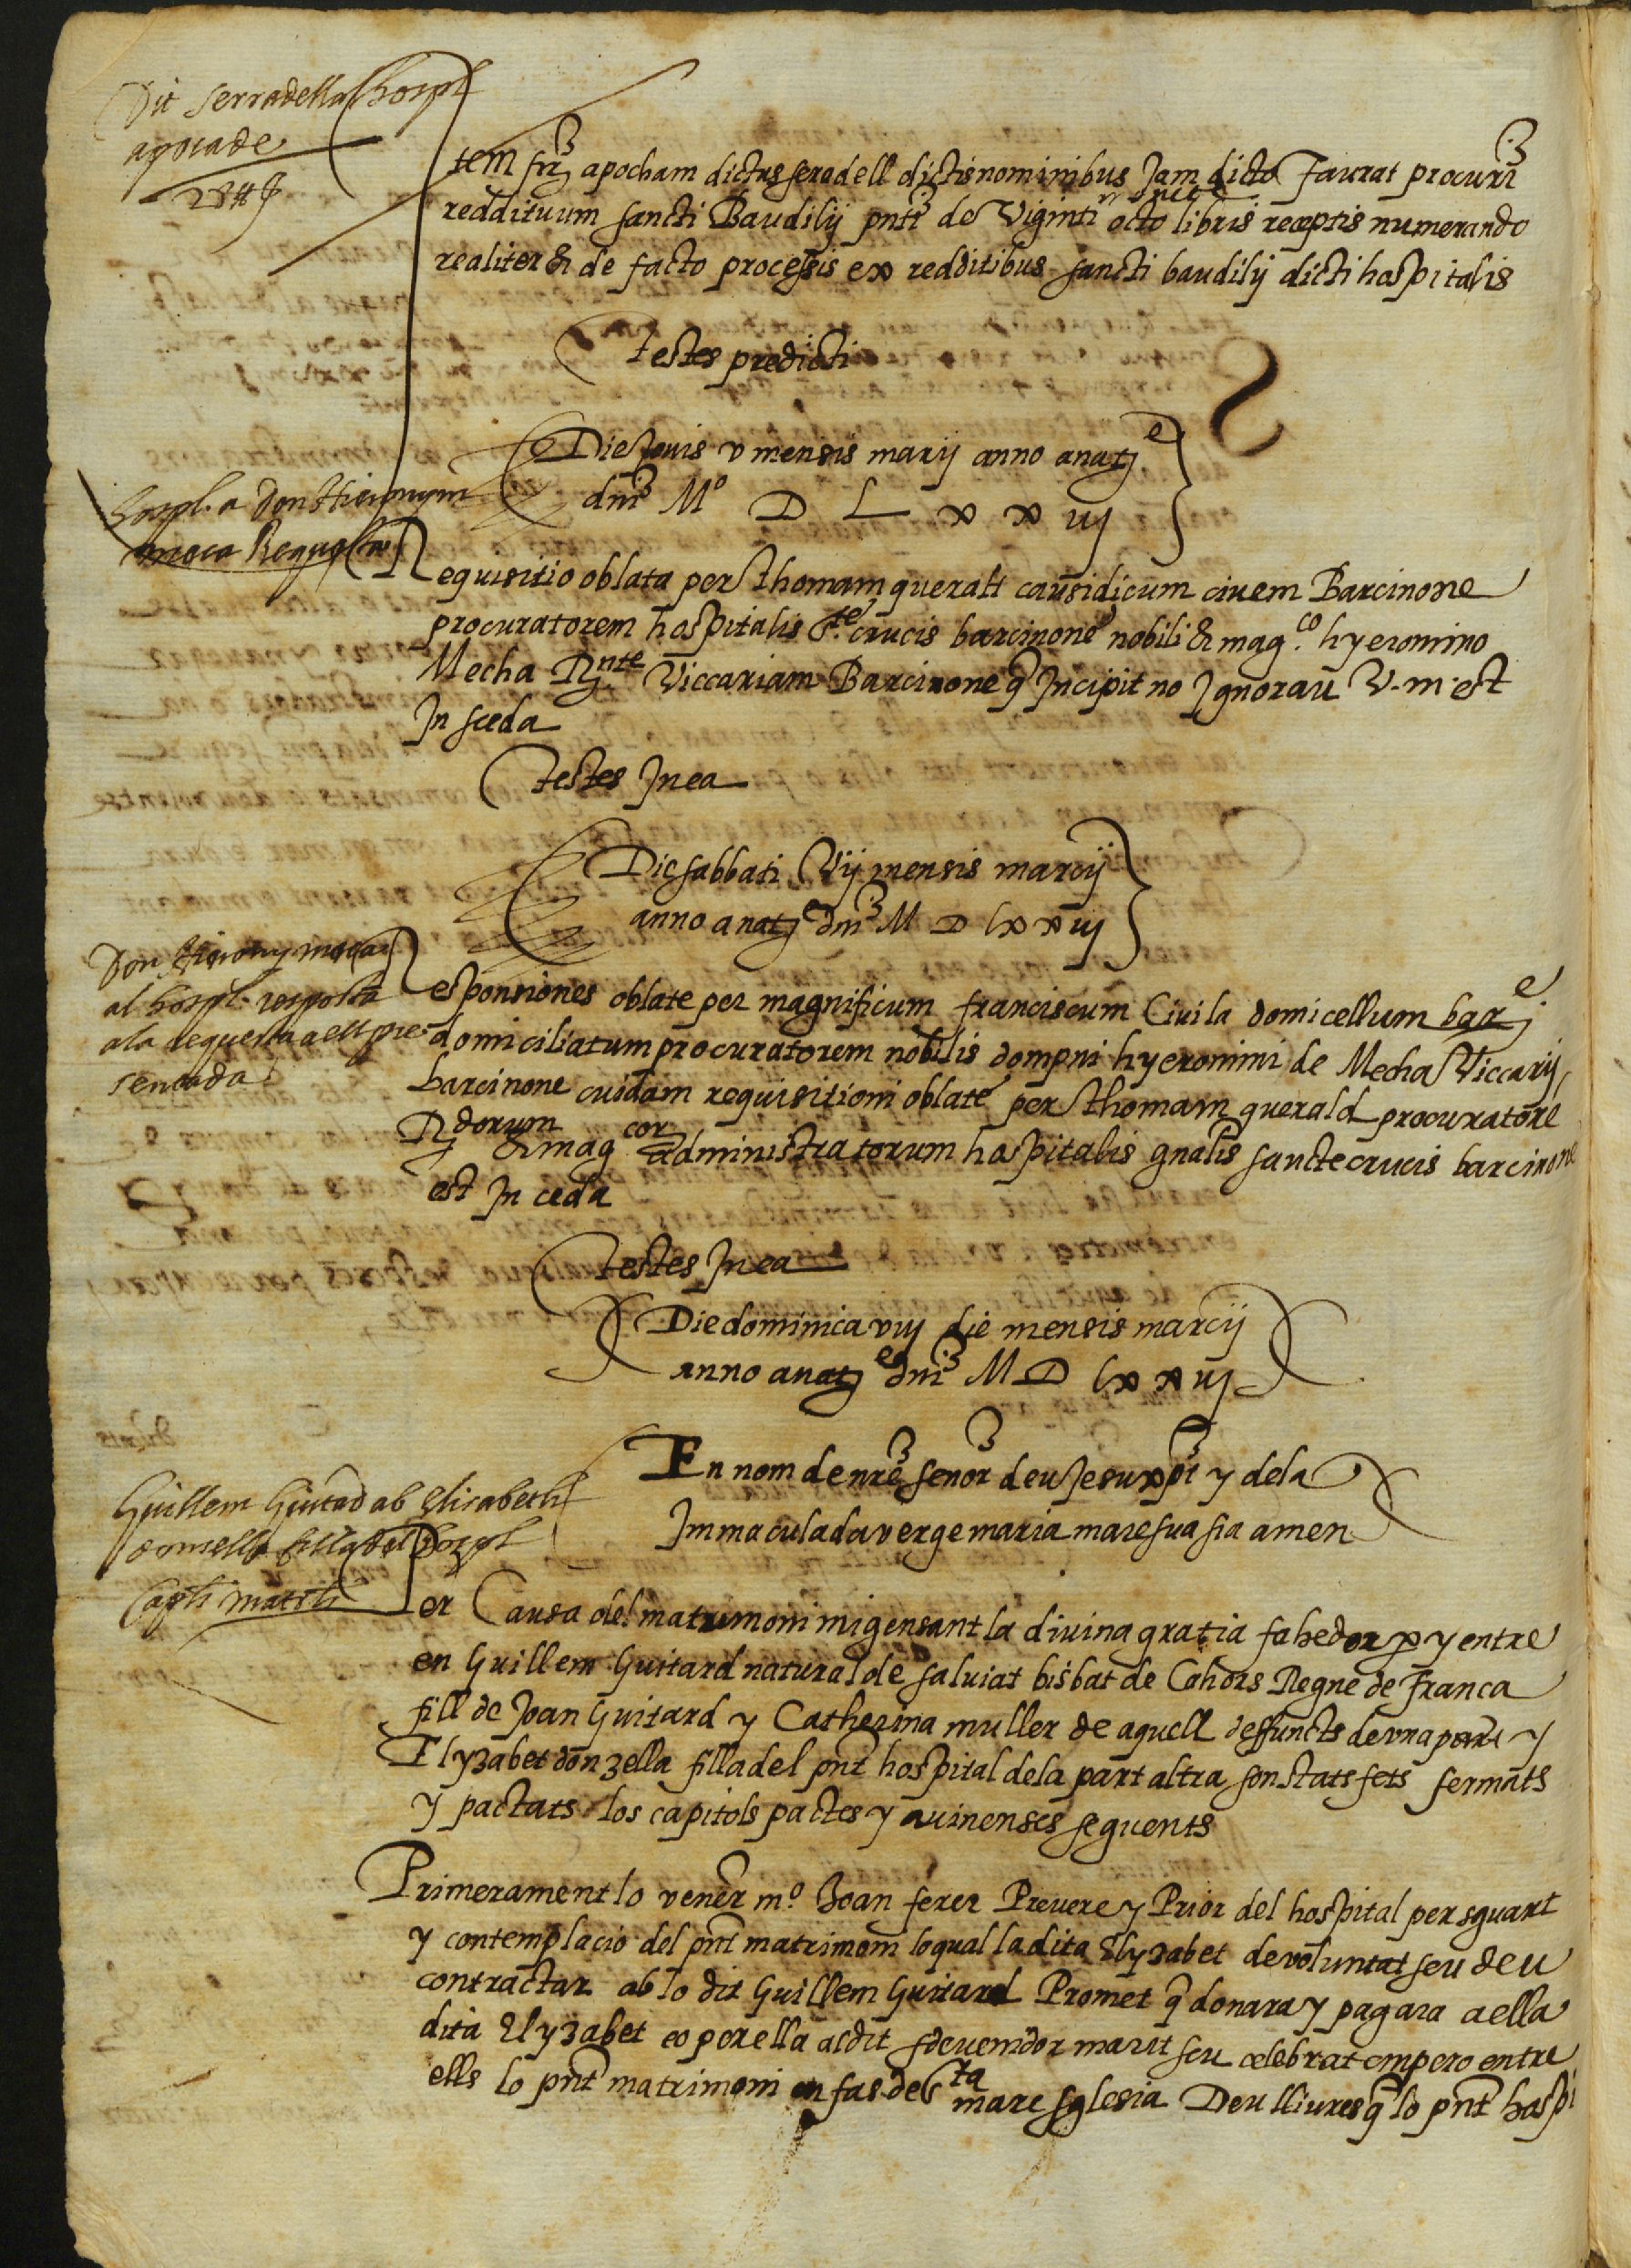 Dit Serradella hospl
apocade
28 ₶
Item fr apocham dictus seradell dictis nominibus Jam dicto faurat procuri
reddituum sancti Baudilij pnti de Viginti octo libris receptis numerando
realiter & de facto processis ex redditibus sancti baudilij dicti hospitalis
testes predicti
Die Jouis v mensis marcij anno anat e
dni Mº D L x x uj
hospl. a don Hieronym
meca Requesta
Requisitio oblata per thomam queralt causidicum ciuem Barcinone
procuratorem hospitalis S.te crucis barcinone nobili & mag.co hyeronimo
Mecha R nte Viccariam Barcinone q Incipit no Ignorau V. m. est
In sceda
testes In ea
Die sabbati Vij mensis marcij
anno anat e dni M D lxx uj
Don Hierony meca
al hospl. resposta
ala requesta aell pre
sentada
Responsiones oblate per magnificum franciscum Ciuila domicellum bar e
domiciliatum procuratorem nobilis dompni hyeronimi de Mecha Viccarij
barcinone cuidam requisitioni oblate per thomam querald procuratore
R dorum & mag cor administratorum hospitalis gnalis sancte crucis barcinone
est In ceda
testes In ea
Die dominica viij die mensis marcij
anno anat e dni M D lxx uj
En nom de nre senor deu Jesu xpi y dela
Immaculada verge maria mare sua sia amen
Guillem Guitad ab Elisabeth
donsella filla del hospl
Capls matrls
Per Causa del matrimoni migensant la diuina gratia fahedor per y entre
en Guillem Guitard natural de saluiat bisbat de Cahors Regne de franca
fill de Joan Guitard y Catherina muller de aquell deffuncts de vna part y
Elyzabet donzella filla del pnt hospital dela part altra son stats fets fermats
y pactats los capitols pactes y auinenses seguents
Primerament lo vener mº Joan ferer Preuere y Prior del hospital per sguart
y contemplacio del pnt matrimoni lo qual la dita Elyzabet de voluntat seu deu
contractar ab lo dit Guillem Guitard Promet q donara y pagara a ella
dita Elyzabet eo per ella al dit sdeuenidor marit seu celebrat empero entre
ells lo pnt matrimoni en fas de S ta mare sglesia Deu lliures q lo pnt hospi